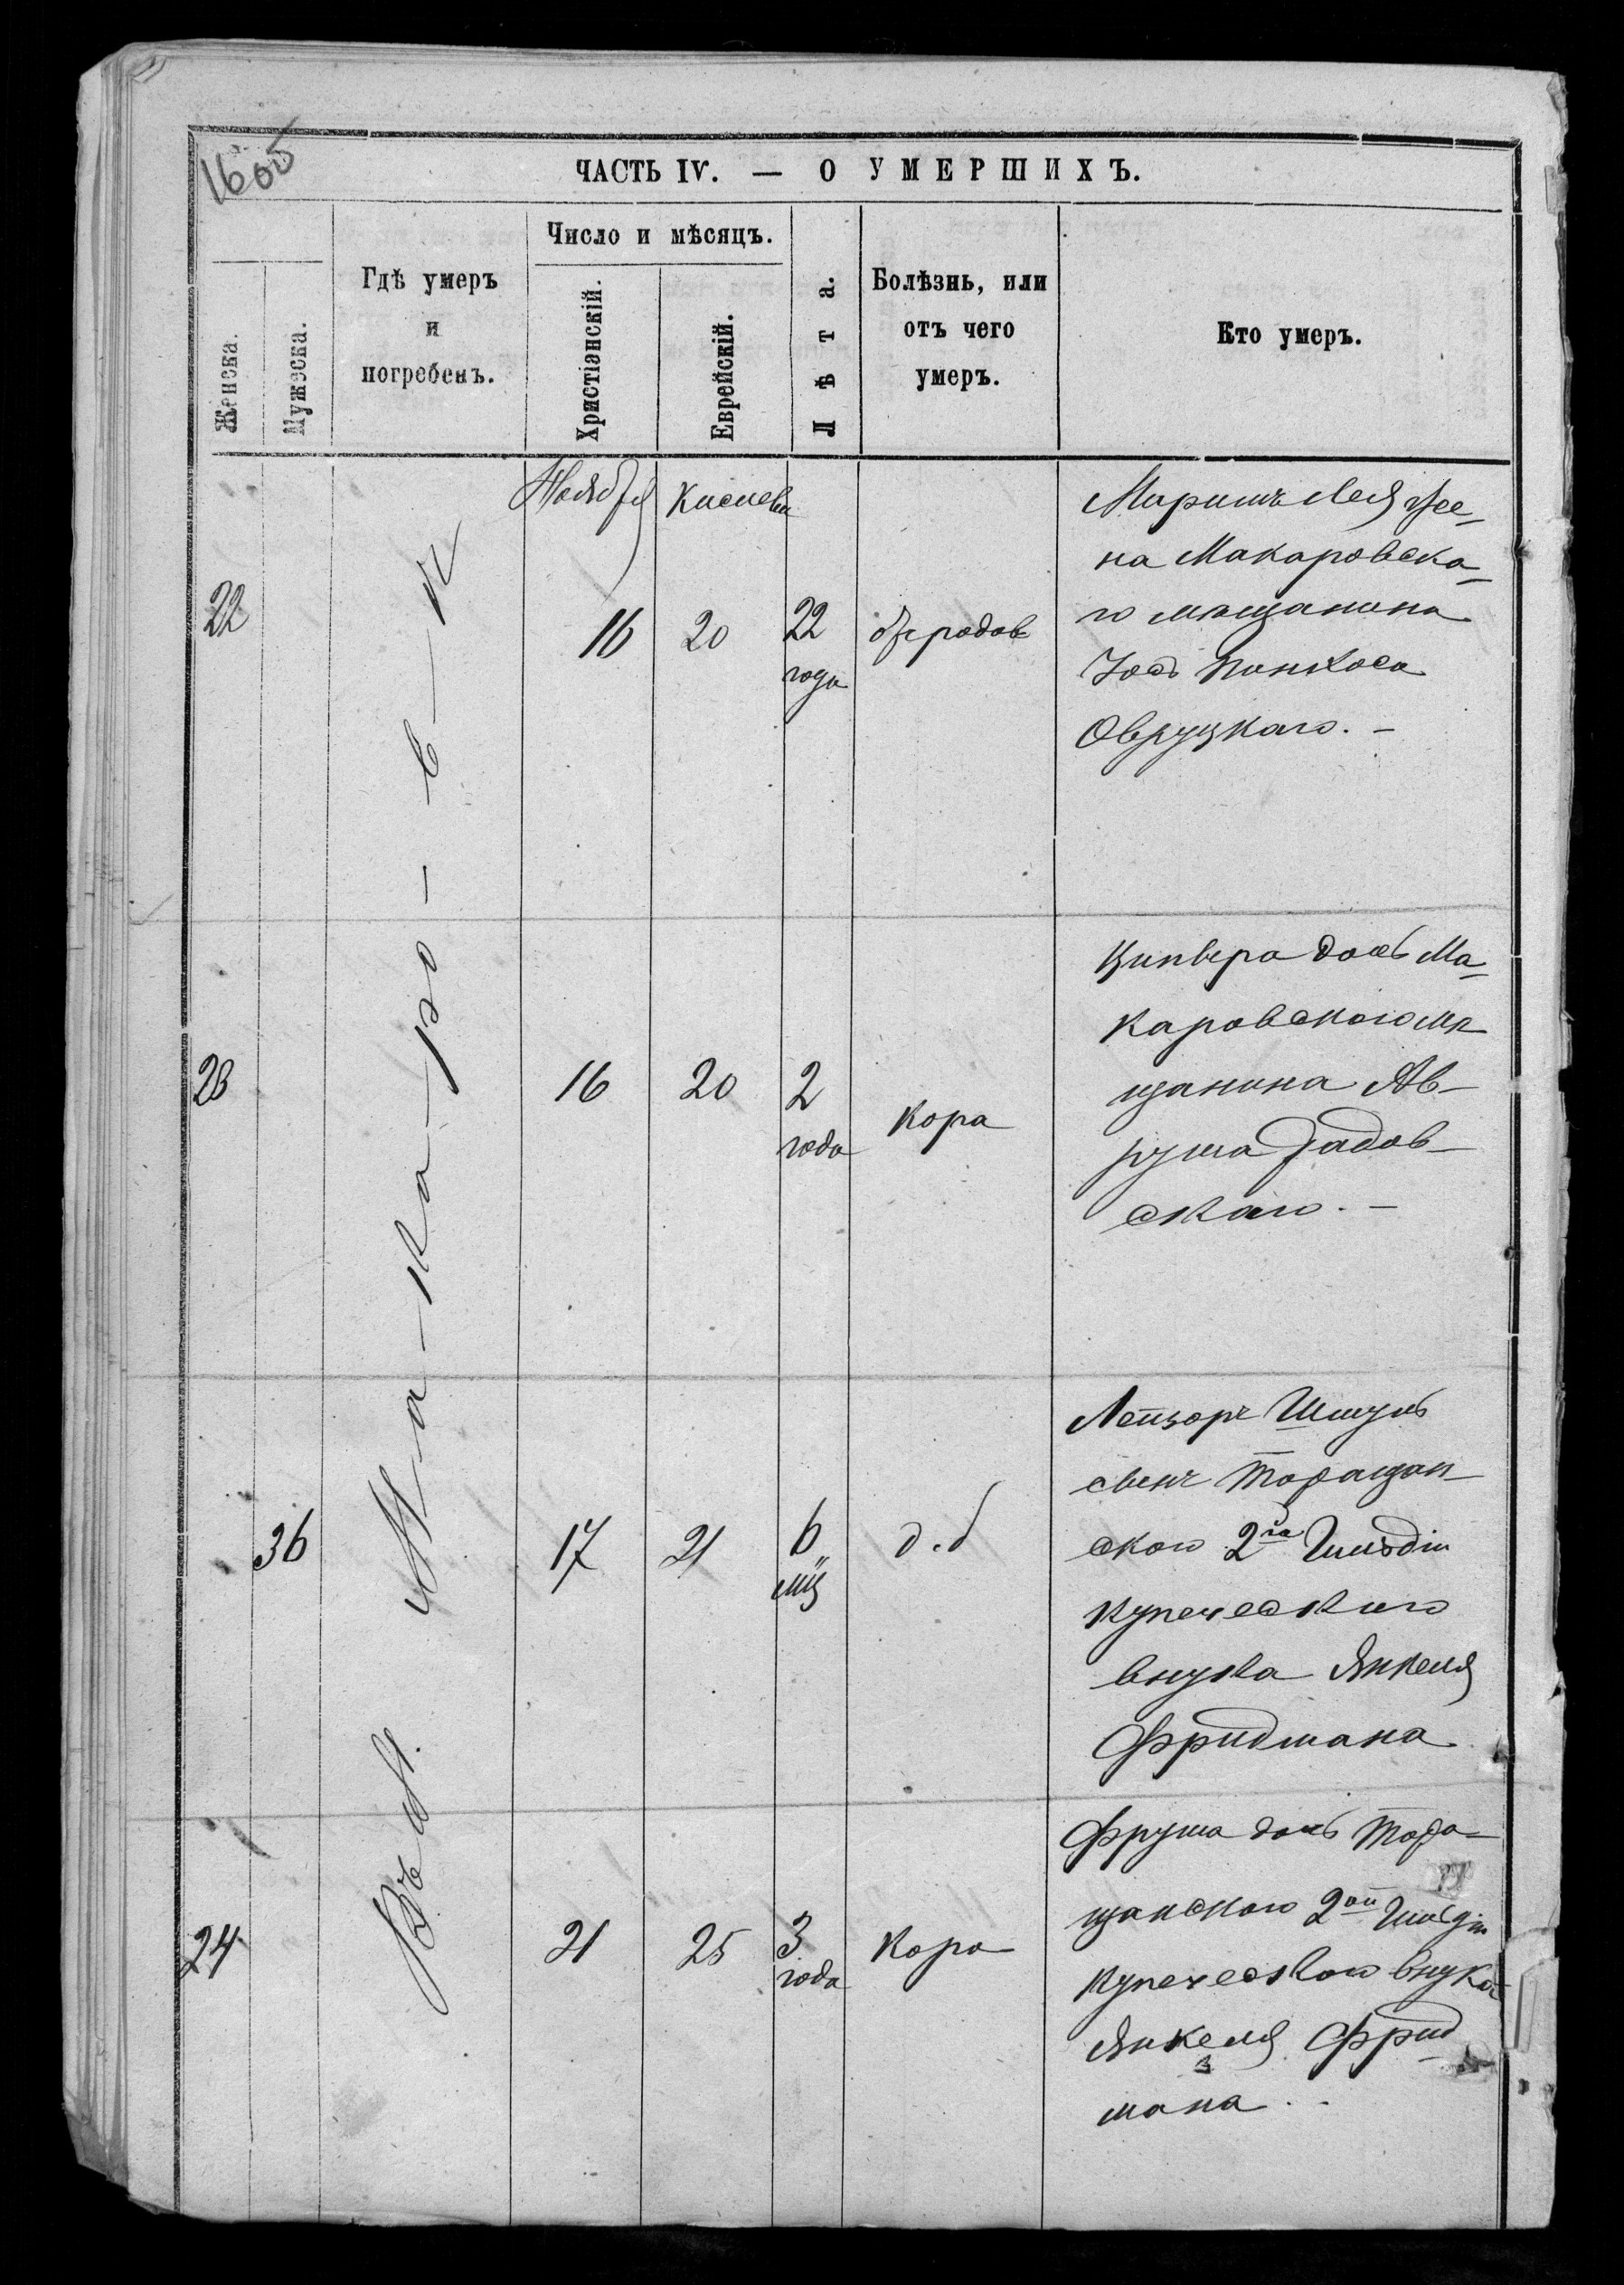 1605
ЧАСТЬ IV. — О УМЕРШИХЪ.
Женска.
Мужеска.
Гдѣ умеръ
и
погребенъ.
Число и мѣсяцъ.
Христіанскій.
Еврейскій.
Лѣта.
Болѣзнь, или
отъ чего
умеръ.
Кто умеръ.
Въ М. Ма-ка-ро-в-ѣ
Ноября
Кислева
22
16
20
22
года
от родов
Миримъ Лея же-
на Макаровска-
го мѣщанина
Іосъ Пинхоса
Овруцкаго. -
23
16
20
2
года
Кора
Ципвера дочь Ма-
каровскаго мѣ
щанина Ав-
рума Радов-
скаго. -
36
17
21
6
мц
д.б
Лейзоръ Шмуль
сынъ Таращан-
скаго 2й Гильдіи
купеческаго
внука Янкеля
Фридмана
24
21
25
3
года
Кора
Фрума дочь Тара-
щанскаго 2ой Гильдіи
купеческаго внука
Янкеля Фрид
мана. .